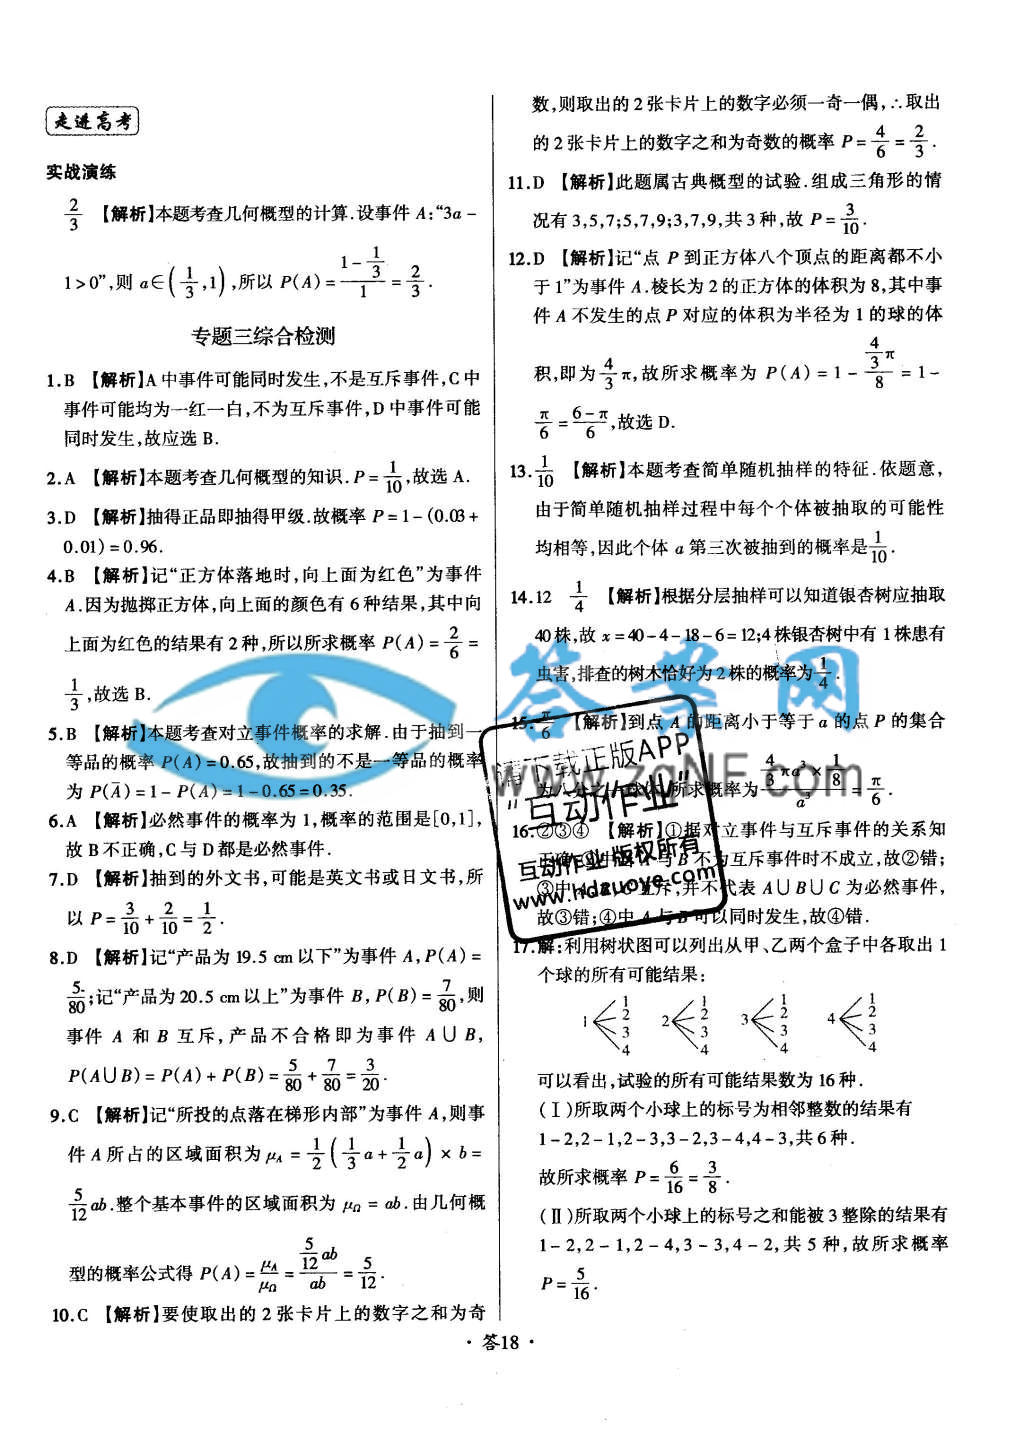 走进高考
实战演练
2/3 【解析】本题考查几何概型的计算.设事件 A:“3a-
1>0”,则 a∈(1/3,1),所以 P(A)=(1-1/3)/1=2/3.
专题三综合检测
1.B 【解析】A 中事件可能同时发生,不是互斥事件,C 中
事件可能均为一红一白,不为互斥事件,D 中事件可能
同时发生,故应选 B.
2.A 【解析】本题考查几何概型的知识.P=1/10,故选 A.
3.D 【解析】抽得正品即抽得甲级.故概率 P=1-(0.03+
0.01)=0.96.
4.B 【解析】记“正方体落地时,向上面为红色”为事件
A.因为抛掷正方体,向上面的颜色有 6 种结果,其中向
上面为红色的结果有 2 种,所以所求概率 P(A)=2/6=
1/3,故选 B.
5.B 【解析】本题考查对立事件概率的求解.由于抽到一
等品的概率 P(A)=0.65,故抽到的不是一等品的概率
为 P(Ā)=1-P(A)=1-0.65=0.35.
6.A 【解析】必然事件的概率为 1,概率的范围是[0,1],
故 B 不正确,C 与 D 都是必然事件.
7.D 【解析】抽到的外文书,可能是英文书或日文书,所
以 P=3/10+2/10=1/2.
8.D 【解析】记“产品为 19.5 cm 以下”为事件 A,P(A)=
5/80;记“产品为 20.5 cm 以上”为事件 B,P(B)=7/80,则
事件 A 和 B 互斥,产品不合格即为事件 A∪B,
P(A∪B)=P(A)+P(B)=5/80+7/80=3/20.
9.C 【解析】记“所投的点落在梯形内部”为事件 A,则事
件 A 所占的区域面积为 μA=1/2(1/3a+1/2a)×b=
5/12ab.整个基本事件的区域面积为 μΩ=ab.由几何概
型的概率公式得 P(A)=μA/μΩ=(5/12ab)/ab=5/12.
10.C 【解析】要使取出的 2 张卡片上的数字之和为奇
数,则取出的 2 张卡片上的数字必须一奇一偶,∴取出
的 2 张卡片上的数字之和为奇数的概率 P=4/6=2/3.
11.D 【解析】此题属古典概型的试验.组成三角形的情
况有 3,5,7;5,7,9;3,7,9,共 3 种,故 P=3/10.
12.D 【解析】记“点 P 到正方体八个顶点的距离都不小
于 1”为事件 A.棱长为 2 的正方体的体积为 8,其中事
件 A 不发生的点 P 对应的体积为半径为 1 的球的体
积,即为4/3π,故所求概率为 P(A)=1-(4/3π)/8=1-
π/6=(6-π)/6,故选 D.
13.1/10 【解析】本题考查简单随机抽样的特征.依题意,
由于简单随机抽样过程中每个个体被抽取的可能性
均相等,因此个体 a 第三次被抽到的概率是1/10.
14.12 1/4 【解析】根据分层抽样可以知道银杏树应抽取
40株,故 x=40-4-18-6=12;4株银杏树中有 1株患有
虫害,排查的树木恰好为 2 株的概率为1/4.
15.π/6 【解析】到点 A 的距离小于等于 a 的点 P 的集合
为八分之一球体,所求概率为(4/3πa³×1/8)/a³=π/6.
16.②③④ 【解析】①据对立事件与互斥事件的关系知
正确;②中 与 B 不为互斥事件时不成立,故②错;
③中 A,B,C 互斥,并不代表 A∪B∪C 为必然事件,
故③错;④中 A 与 B 可以同时发生,故④错.
17.解:利用树状图可以列出从甲、乙两个盒子中各取出 1
个球的所有可能结果:
1 1 2 3 4 2 1 2 3 4 3 1 2 3 4 4 1 2 3 4
可以看出,试验的所有可能结果数为 16 种.
(Ⅰ)所取两个小球上的标号为相邻整数的结果有
1-2,2-1,2-3,3-2,3-4,4-3,共 6 种.
故所求概率 P=6/16=3/8.
(Ⅱ)所取两个小球上的标号之和能被 3 整除的结果有
1-2,2-1,2-4,3-3,4-2,共 5 种,故所求概率
P=5/16.
·答18·
答案网
www.zqNF.com
请下载正版APP
“互动作业”
互动作业 版权所有
www.hdzuoye.com